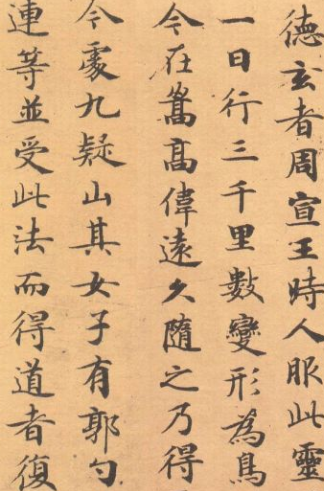 德玄者周宣王時人服此靈
一日行三千里數變形為鳥
今在嵩高偉遠久隨之乃得
今處九疑山其女子有郭勺
連等並受此法而得道者復